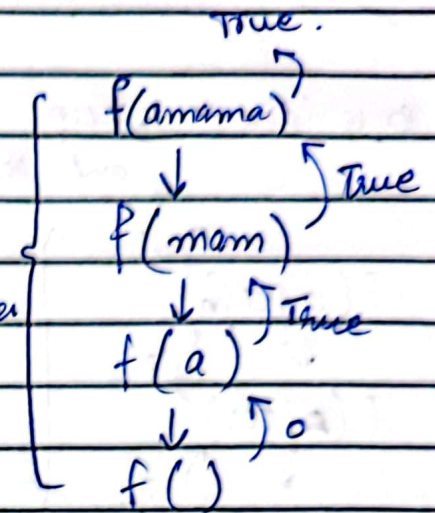 True.
f(amama)
True
f(mam)
True
f(a)
0
f()